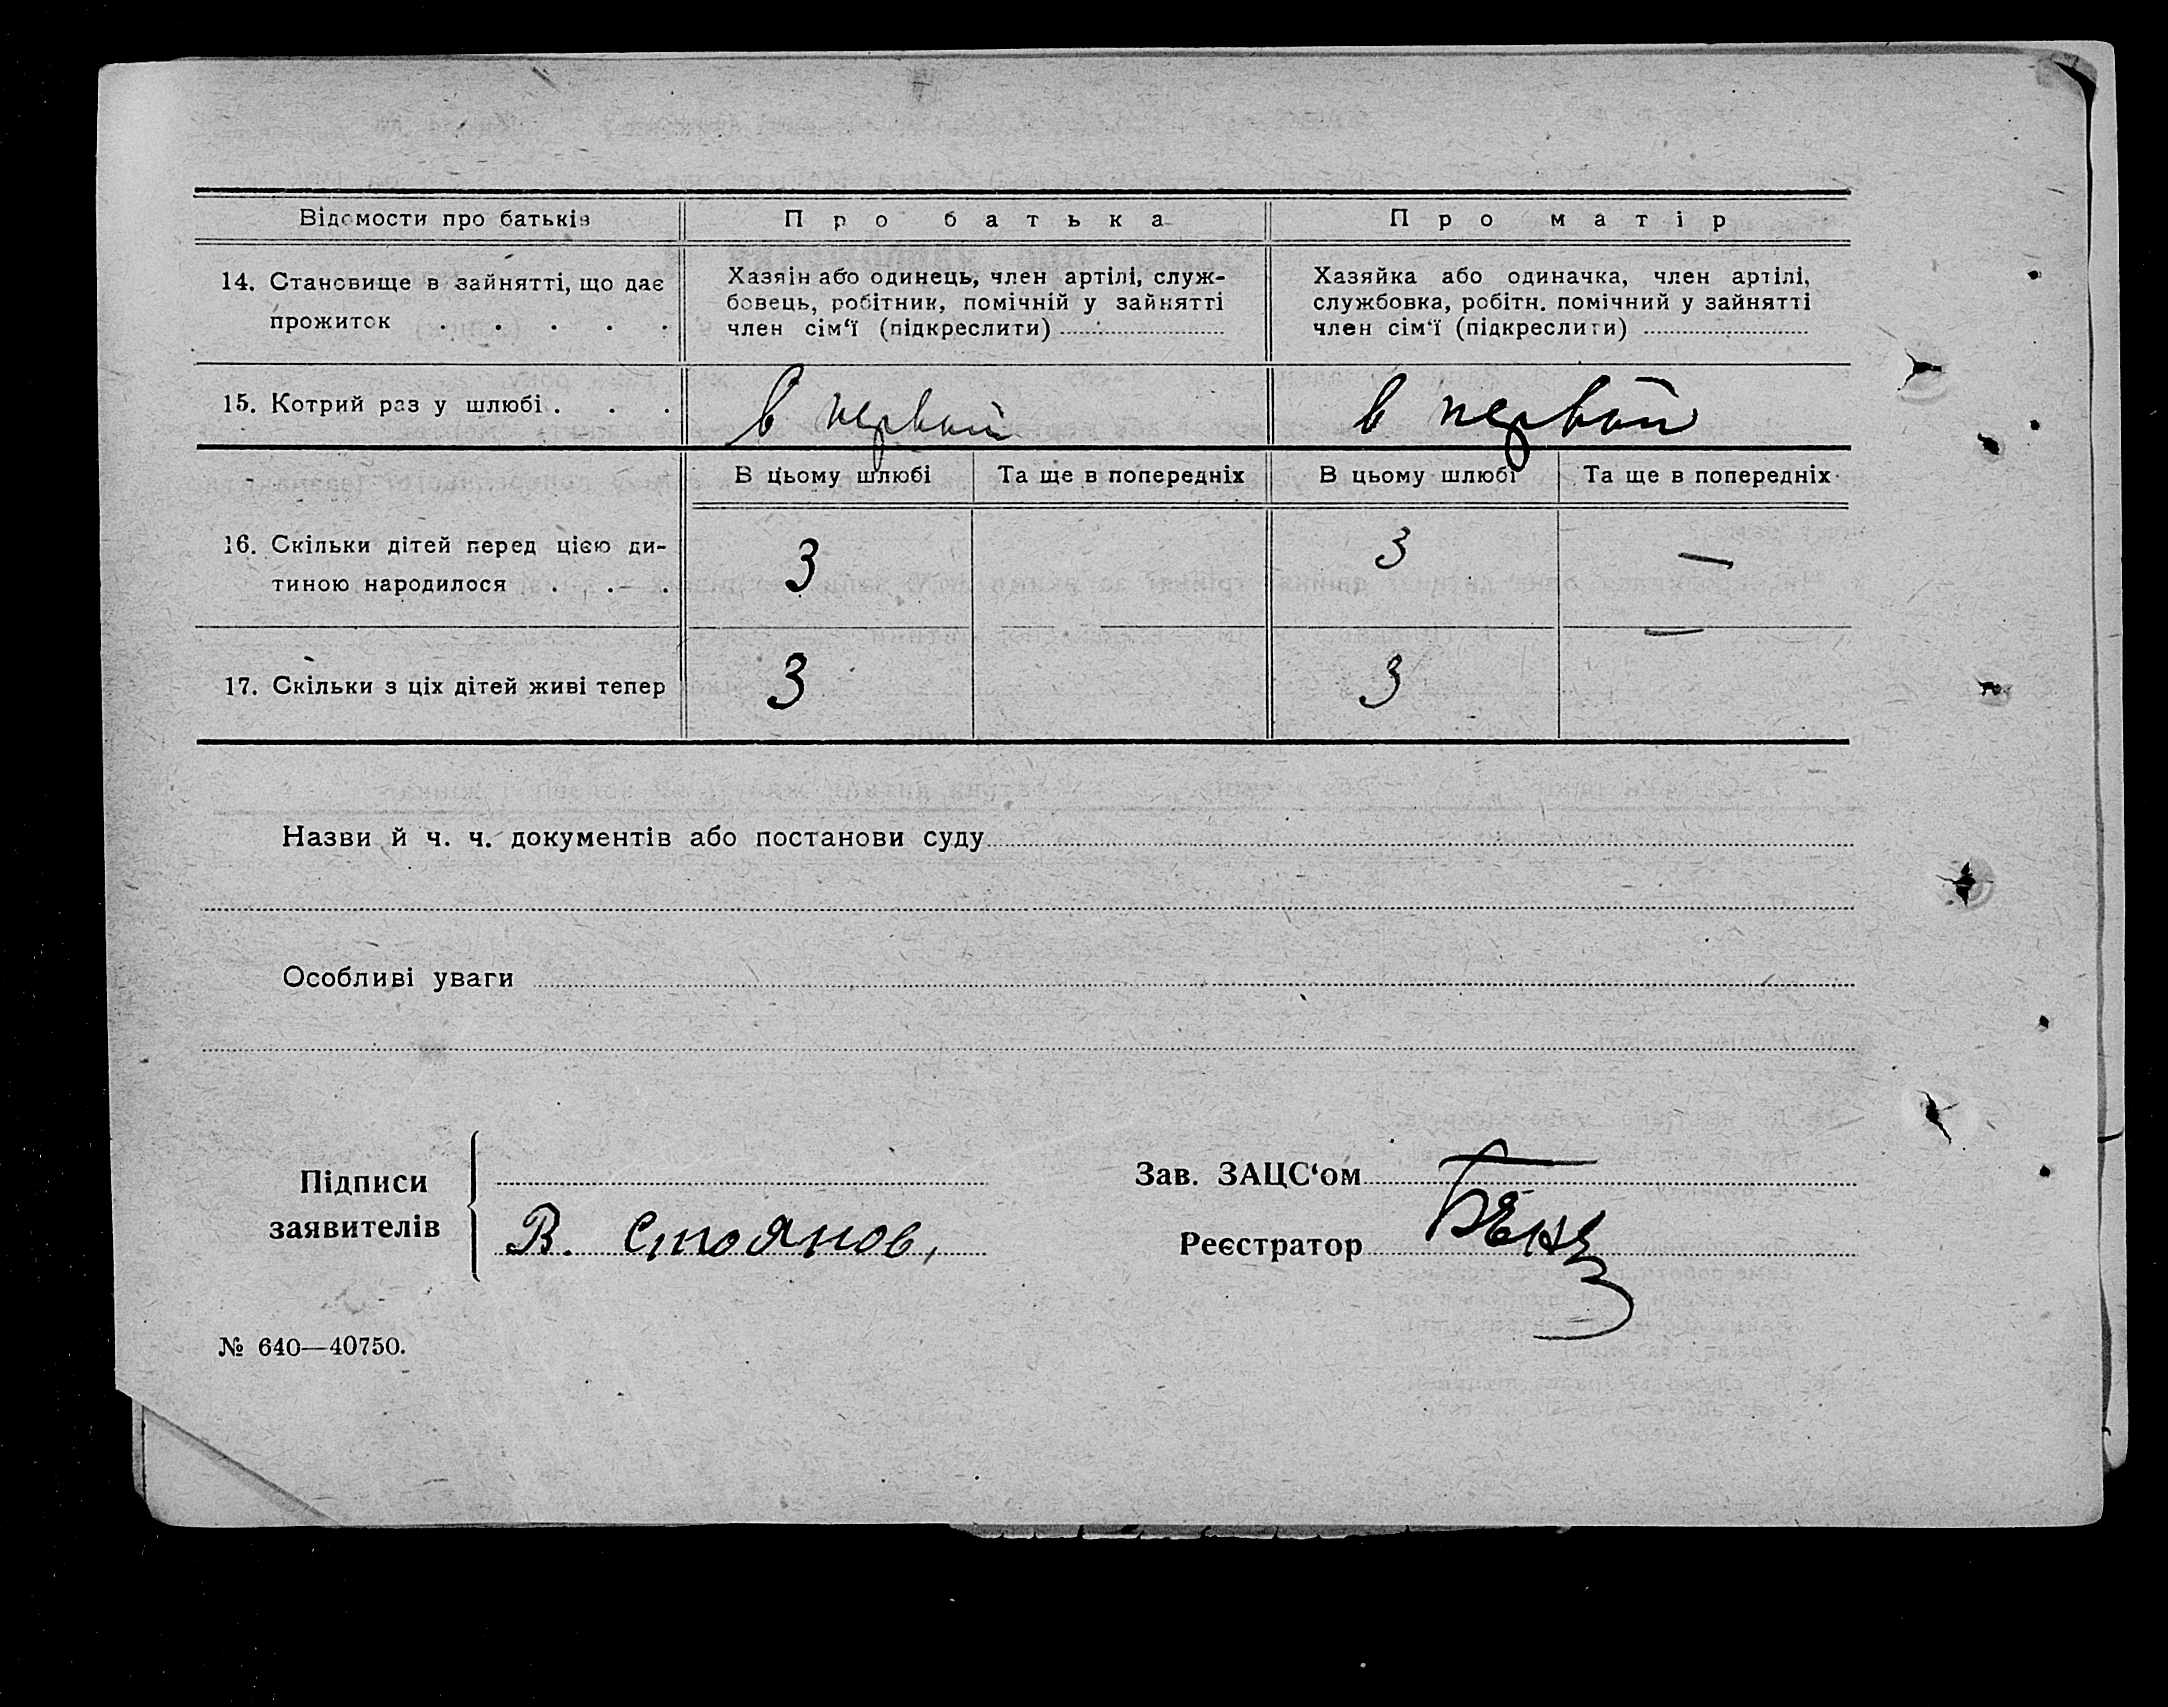 Відомости про батьків
Про батька
Про матір
14. Становище в зайнятті, що дає
прожиток . . . . .
Хазяїн або одинець, член артілі, служ-
бовець, робітник, помічній у зайнятті
член сім‘ї (підкреслити)
Хазяйка або одиначка, член артілі,
службовка, робітн. помічний у зайнятті
член сім‘ї (підкреслити)
15. Котрий раз у шлюбі . . .
в первый
в первый
В цьому шлюбі
Та ще в попередніх
В цьому шлюбі
Та ще в попередніх
16. Скільки дітей перед цією ди-
тиною народилося . . .
3
3
—
17. Скільки з ціх дітей живі тепер
3
3
—
Назви й ч. ч. документів або постанови суду
Особливі уваги
Підписи
заявителів
В. Стоянов,
Зав. ЗАЦС‘ом
Реєстратор
№ 640—40750.